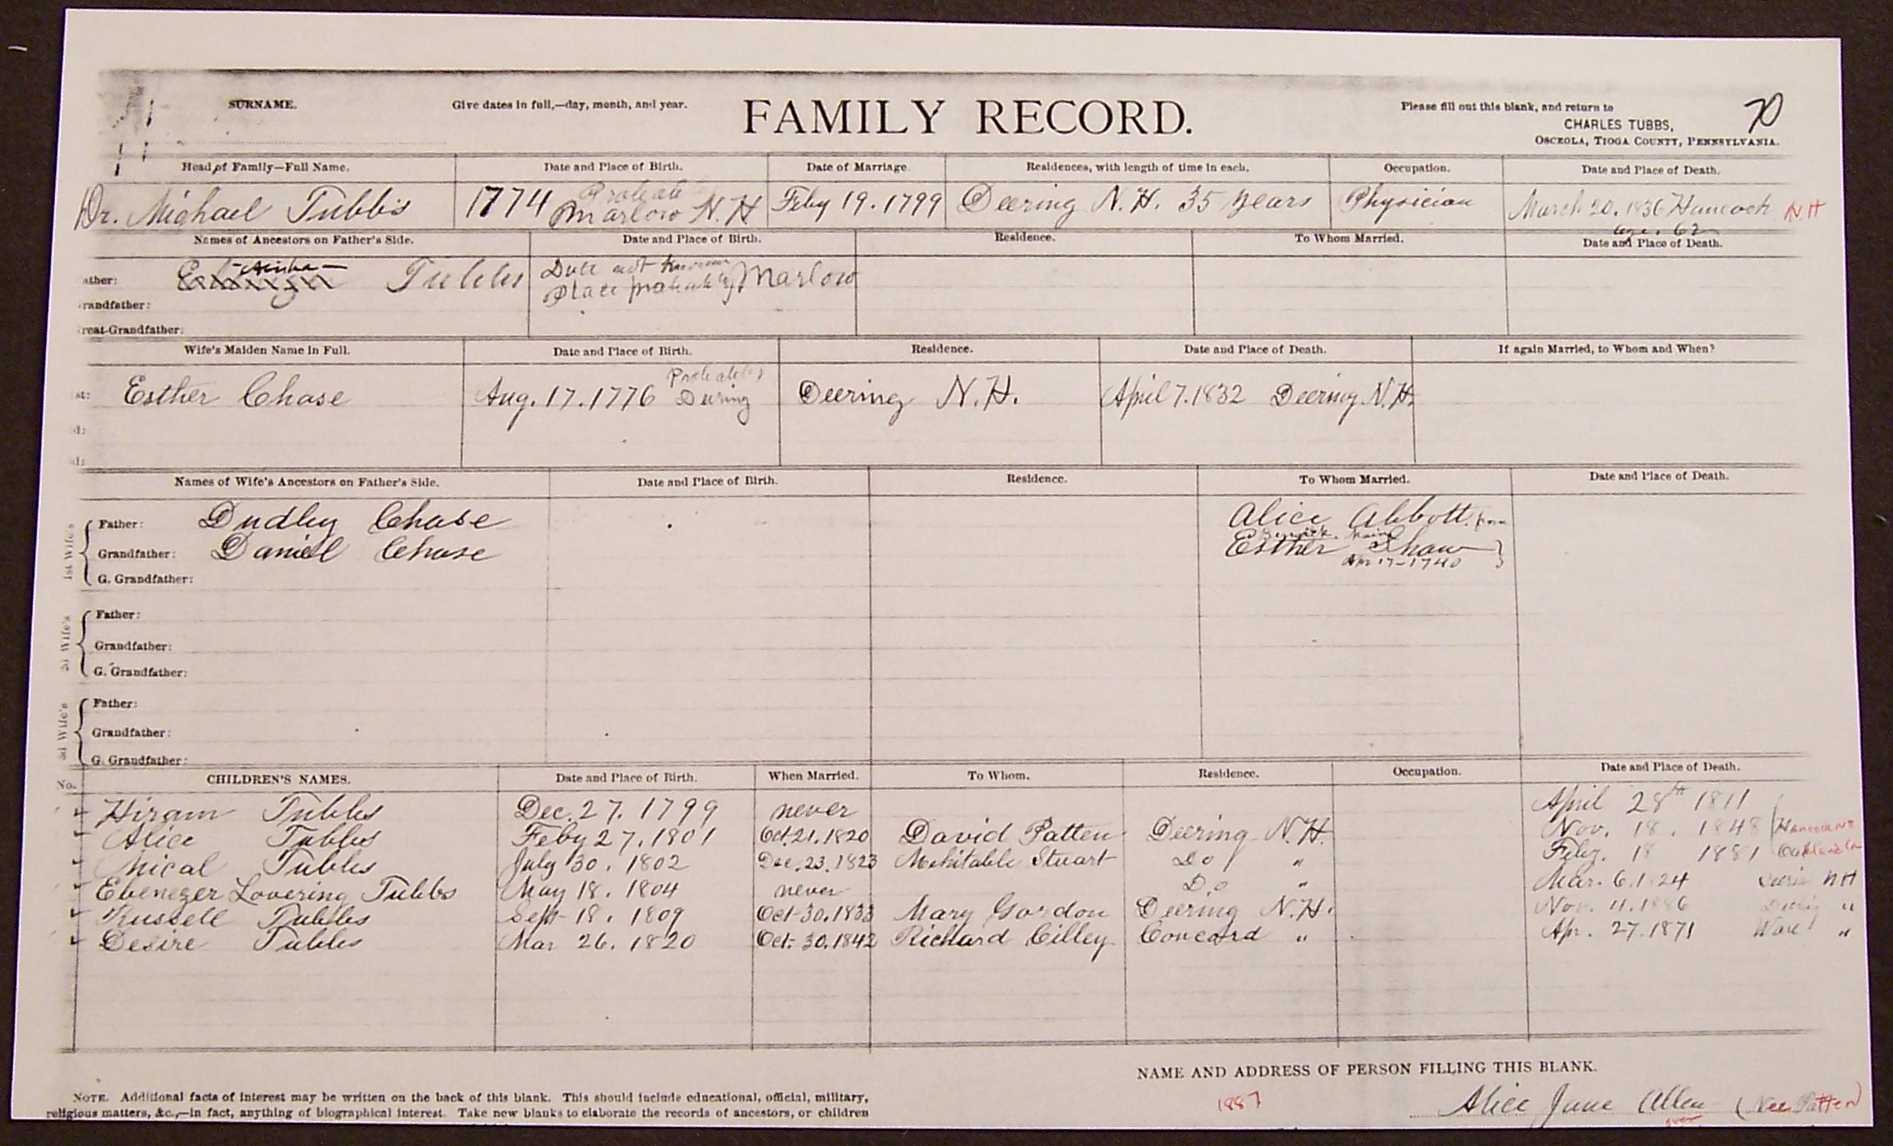 SURNAME. Give dates in full,—day, month, and year. FAMILY RECORD. Please fill out this blank, and return to
CHARLES TUBBS,
OSCEOLA, TIOGA COUNTY, PENNSYLVANIA.
70
Head of Family—Full Name. Date and Place of Birth. Date of Marriage. Residences, with length of time in each. Occupation. Date and Place of Death.
Dr. Michael Tubbs 1774 Probate Marlow N.H Feby 19. 1799 Deering N.H. 35 years Physician March 20. 1836 Hancock NH
age. 62
Names of Ancestors on Father's Side. Date and Place of Birth. Residence. To Whom Married. Date and Place of Death.
ather: Tubbs Date not known
Place probably Marlow
randfather:
reat-Grandfather:
Wife's Maiden Name in Full. Date and Place of Birth. Residence. Date and Place of Death. If again Married, to Whom and When?
st: Esther Chase Aug. 17. 1776 Probably Deering Deering N.H. April 7. 1832 Deering N.H.
d:
d:
Names of Wife's Ancestors on Father's Side. Date and Place of Birth. Residence. To Whom Married. Date and Place of Death.
1st Wife's
Father: Dudley Chase Alice Abbott from
Berwick. Maine
Grandfather: Daniel Chase Esther Shaw
Apr 17-1740
G. Grandfather:
2d Wife's
Father:
Grandfather:
G. Grandfather:
3d Wife's
Father:
Grandfather:
G. Grandfather:
No. CHILDREN'S NAMES. Date and Place of Birth. When Married. To Whom. Residence. Occupation. Date and Place of Death.
Hiram Tubbs Dec. 27. 1799 never April 28th 1811
Alice Tubbs Feby 27. 1801 Oct. 21. 1820 David Patten Deering N.H. Nov. 18. 1848 Hancock NH
Mical Tubbs July 30. 1802 Dec. 23. 1823 Mehitable Stuart Do " Feby. 18 1881
Ebenezer Lovering Tubbs May 18. 1804 never Do " Mar. 6. 1824 NH
Russell Tubbs Sept 18. 1809 Oct-30. 1833 Mary Gordon Deering N.H. Nov. 11. 1886 "
Desire Tubbs Mar 26. 1820 Oct- 30. 1842 Richard Cilley Concord " Apr. 27. 1871 "
NAME AND ADDRESS OF PERSON FILLING THIS BLANK.
NOTE. Additional facts of interest may be written on the back of this blank. This should include educational, official, military,
religious matters, &c.,—in fact, anything of biographical interest. Take new blanks to elaborate the records of ancestors, or children
1887 Alice Jane Allen (Nee Patten)
over